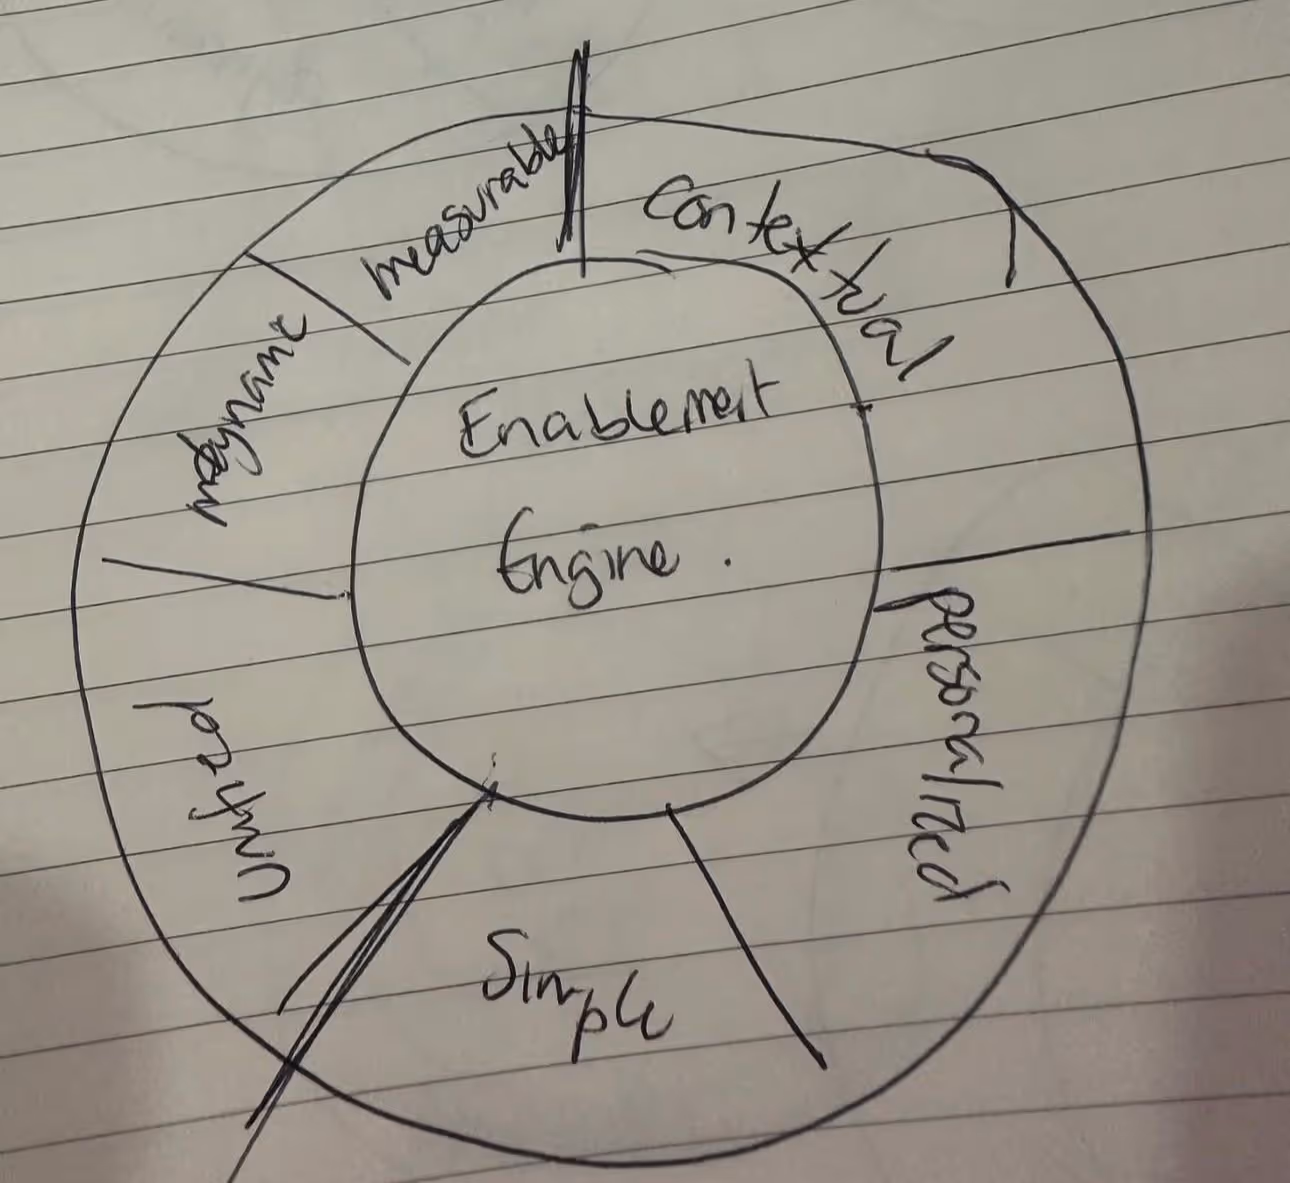 measurable
contextual
dynamic
Enablement
Engine.
personalized
unified
Simple